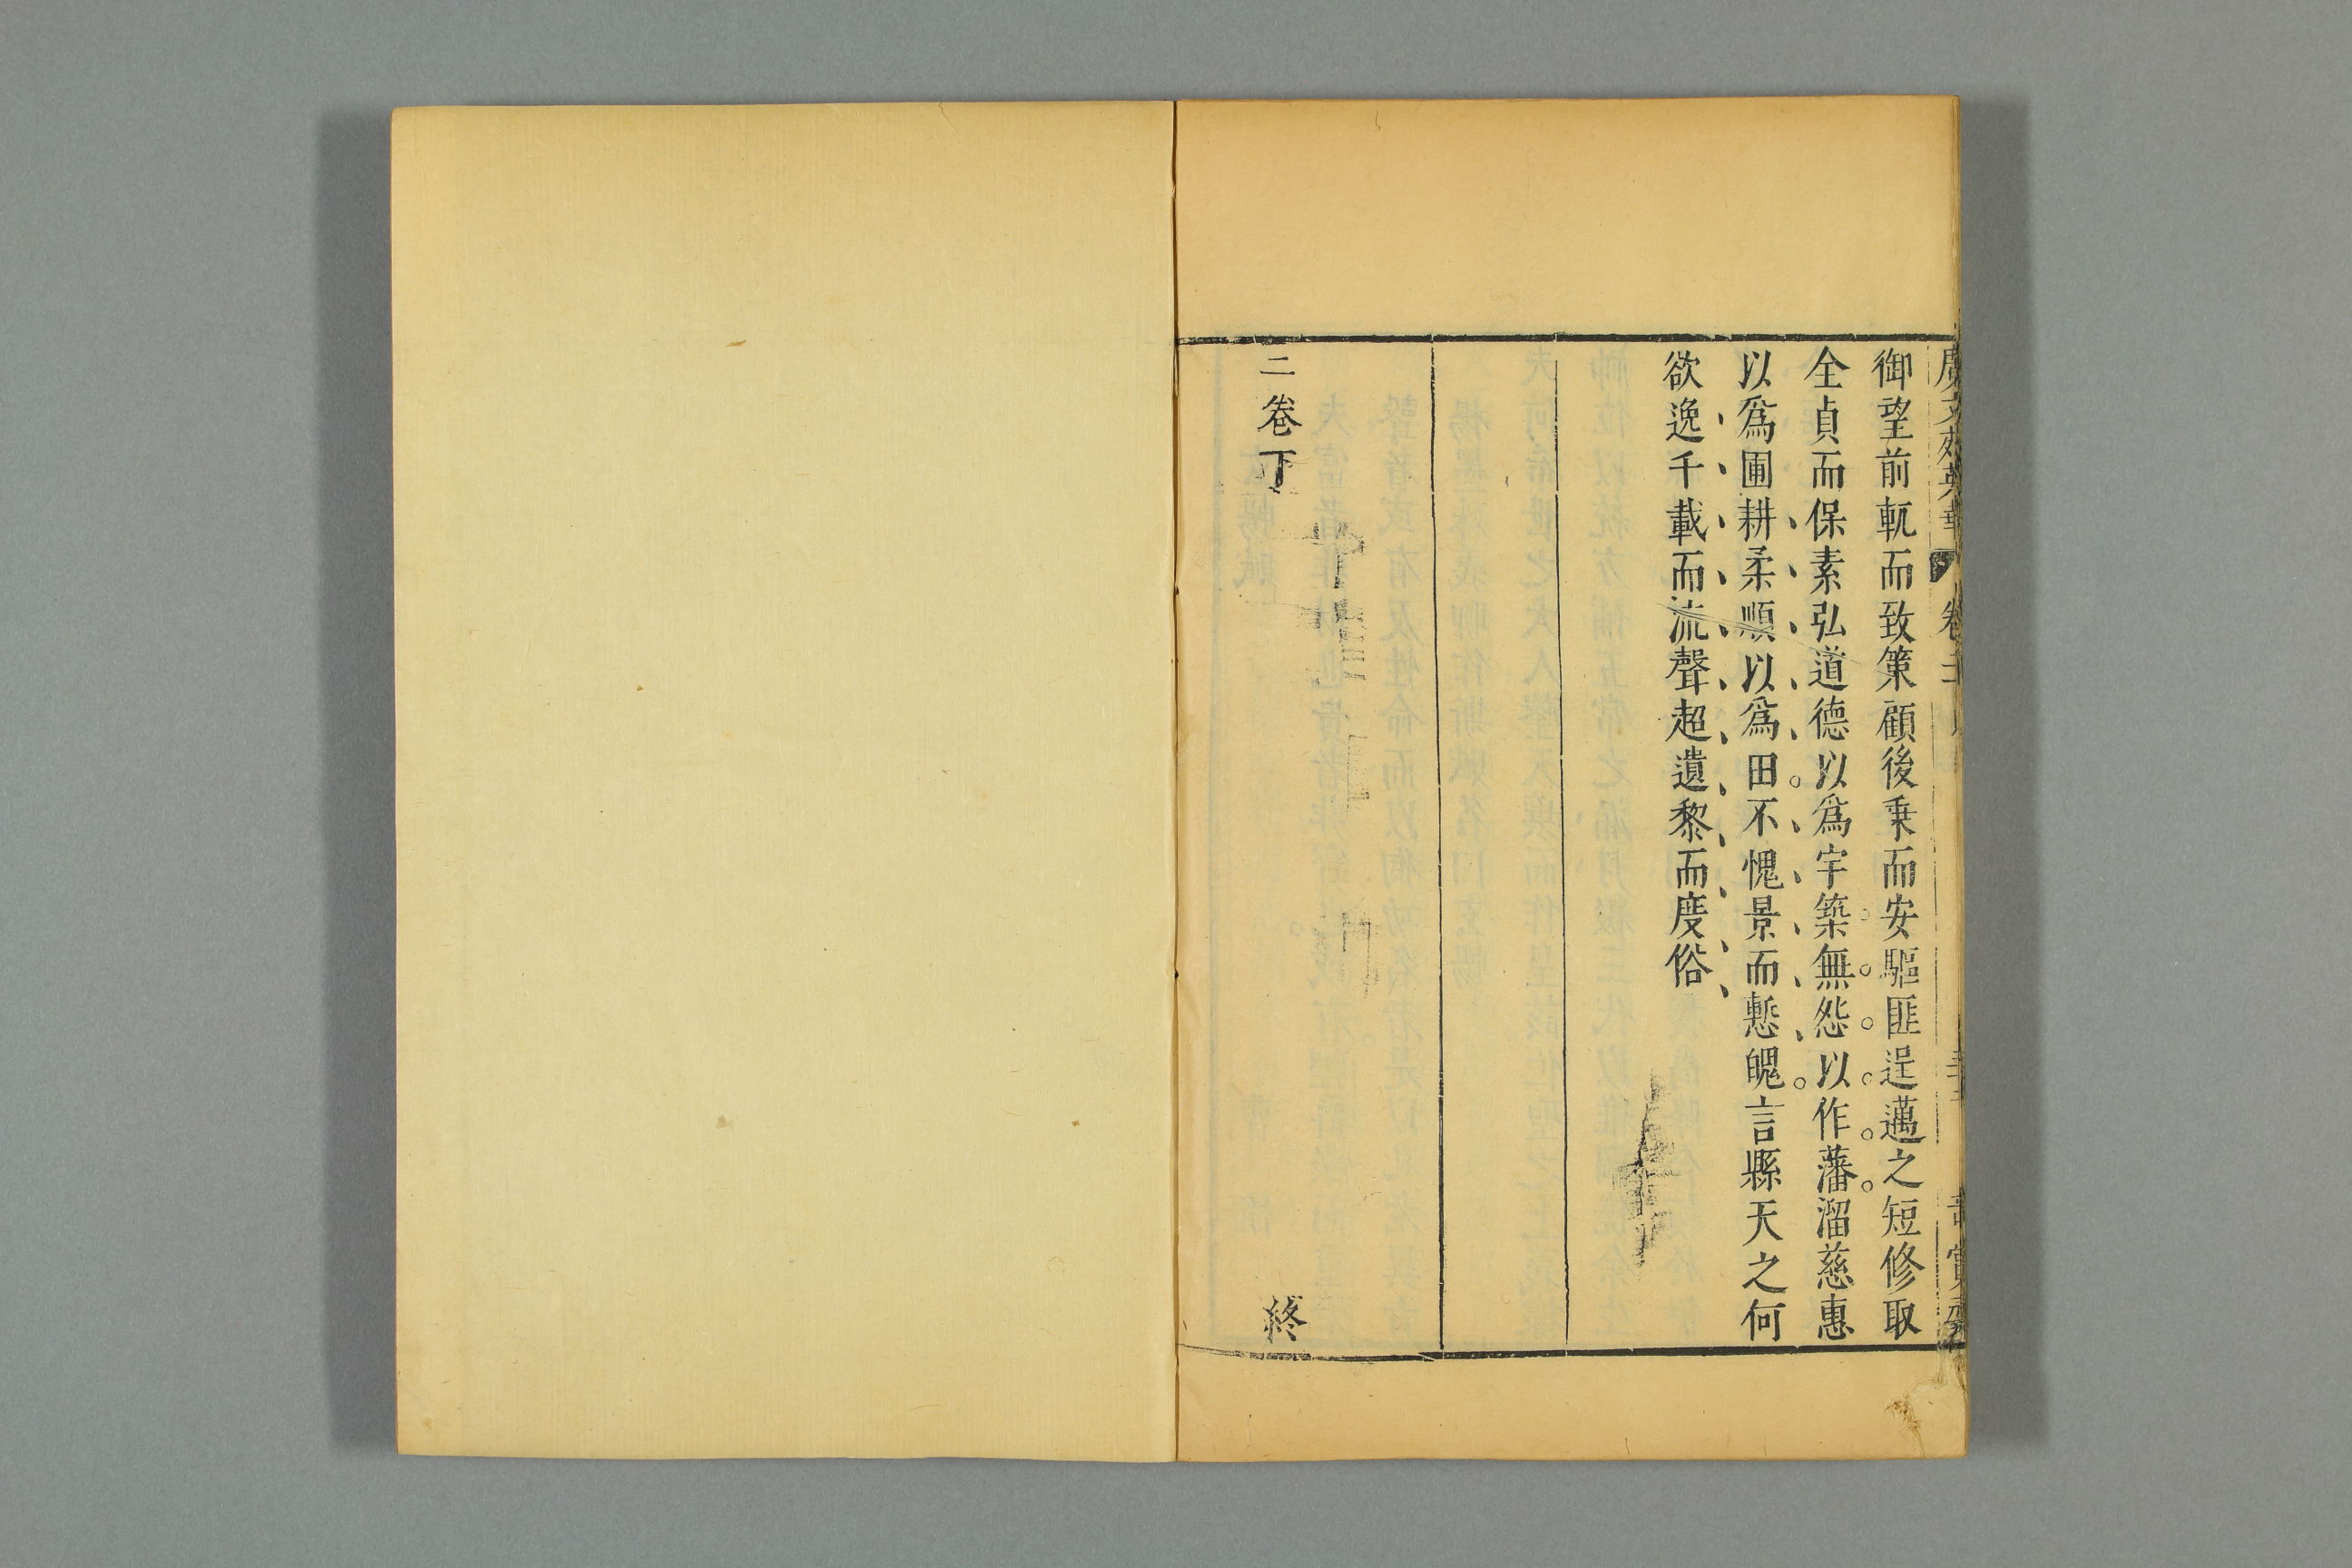 廣文苑英華 卷二 賞齋
御望前軌而致策顧後乗而安驅匪逞邁之短修取
全貞而保素弘道德以爲宇築無怨以作藩溜慈惠
以爲圃耕柔順以爲田不愧景而慙魄言縣天之何
欲逸千載而流聲超遺黎而度俗
二卷丁
終